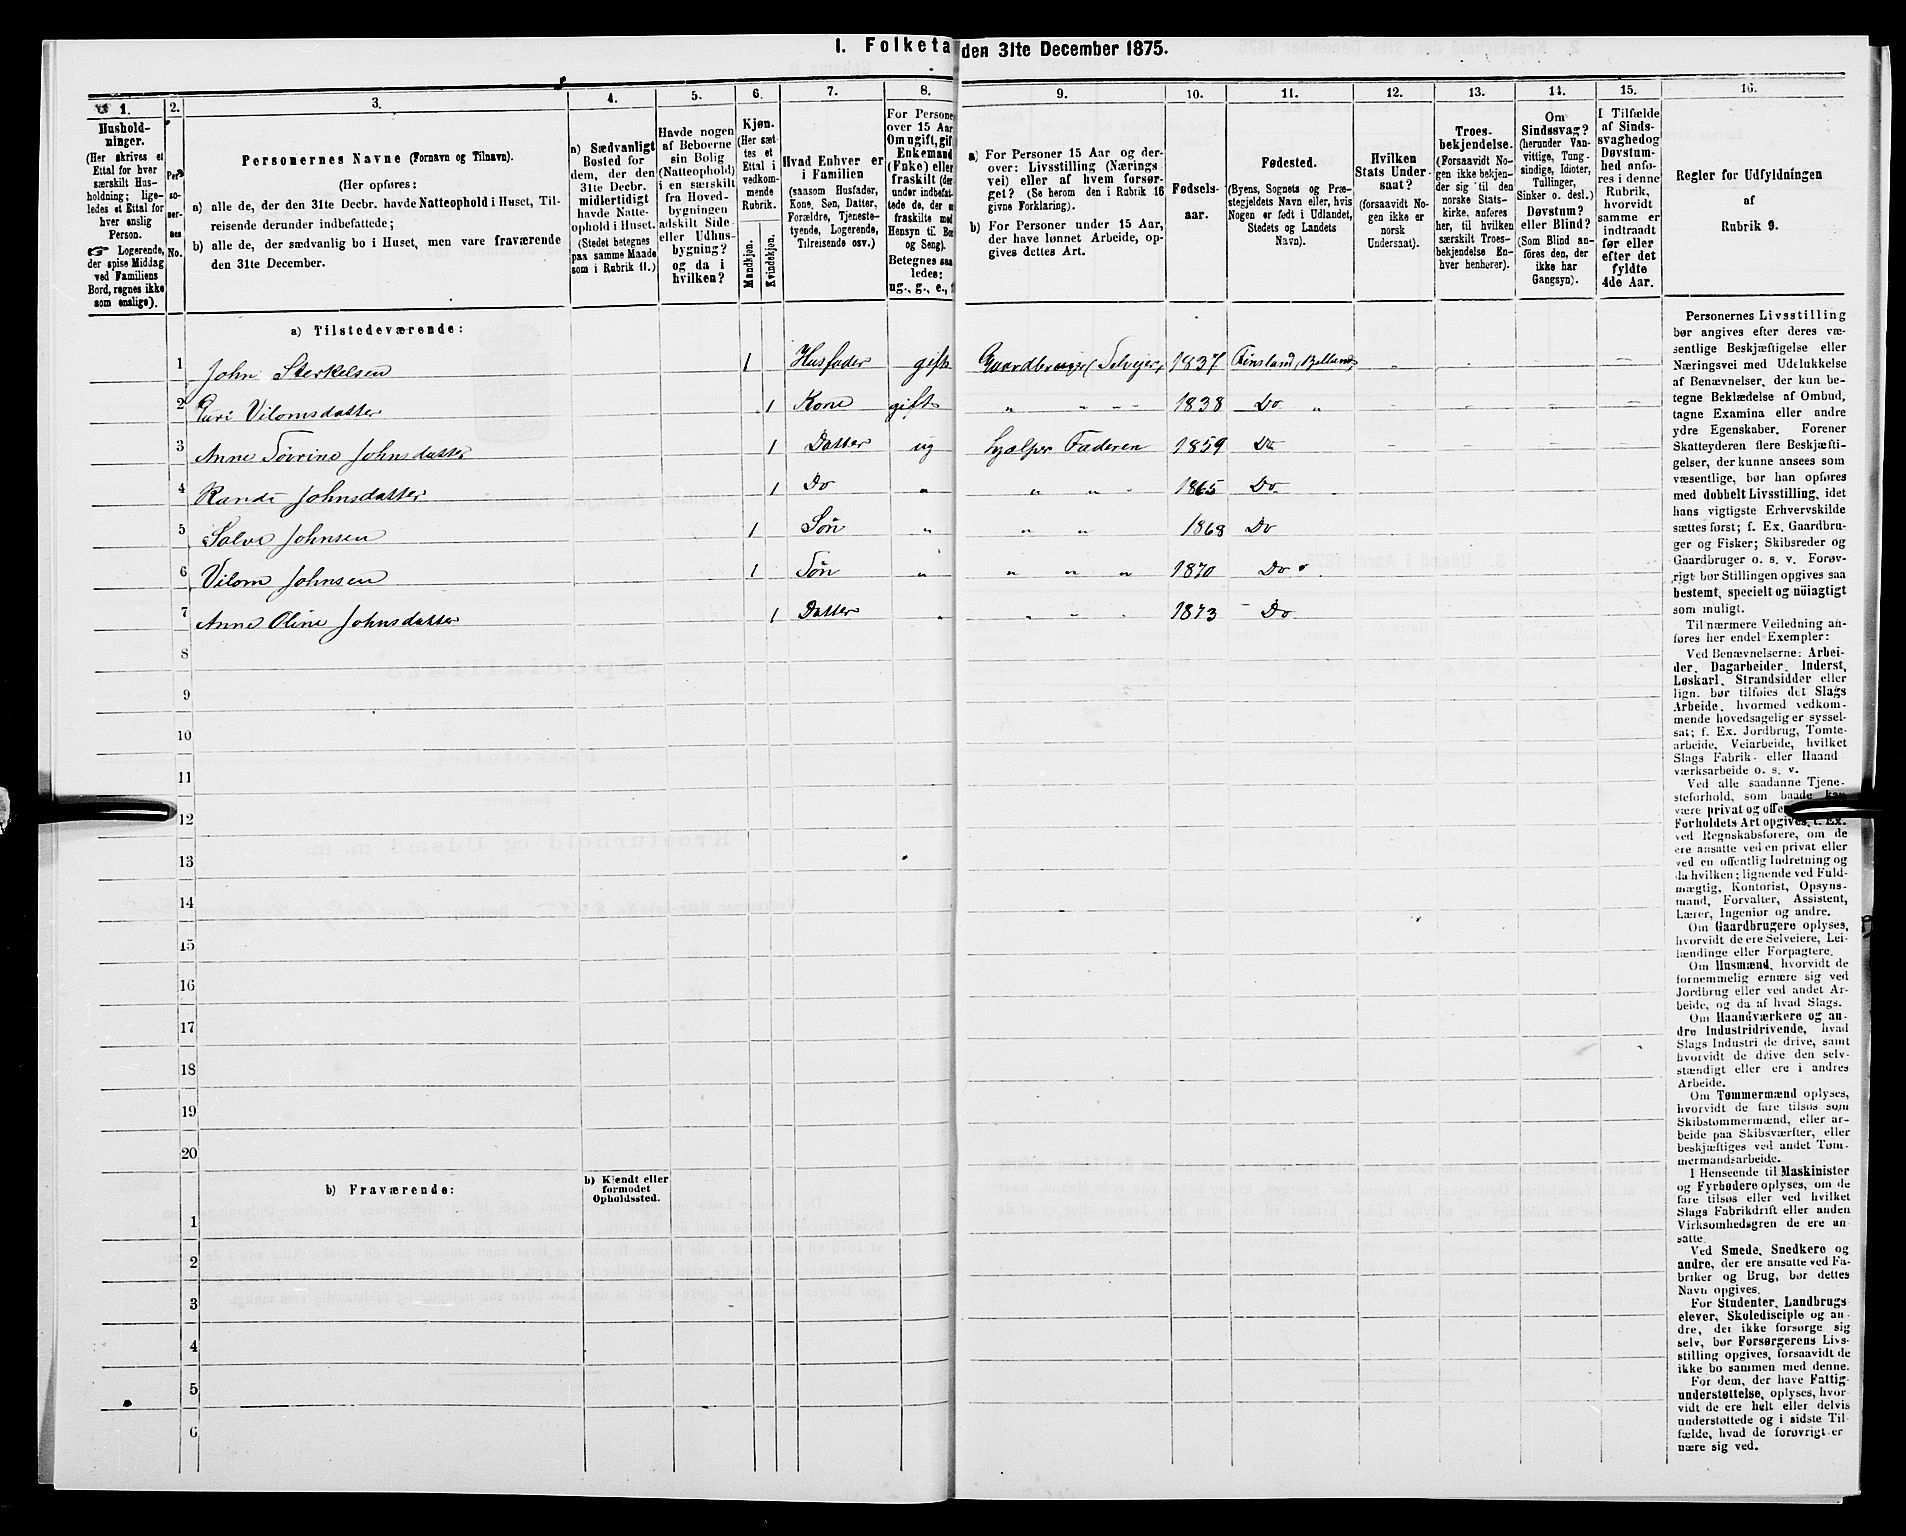 I. Folketa den 31te December 1875.
1.
Hushold-
ninger.
(Her skrives et
Ettal for hver
særskilt Hus-
holdning; lige-
ledes et Ettal for
hver enslig
Person.
☞ Logerende,
der spise Middag
ved Familiens
Bord, regnes ikke
som enslige).
2.
Per-
so-
ner-
nes
No.
3.
Personernes Navne (Fornavn og Tilnavn).
(Her opføres:
a) alle de, der den 31te Decbr. havde Natteophold i Huset, Til-
reisende derunder indbefattede;
b) alle de, der sædvanlig bo i Huset, men vare fraværende
den 31te December.
4.
a) Sædvanligt
Bosted for
dem, der den
31te Decbr.
midlertidigt
havde Natte-
ophold i Huset.
(Stedet betegnes
paa samme Maade
som i Rubrik 11.)
5.
Havde nogen
af Beboerne
sin Bolig
(Natteophold)
i en særskilt
fra Hoved-
bygningen
adskilt Side-
eller Udhus-
bygning?
og da i
hvilken?
6.
Kjøn.
(Her sæt-
tes et
Ettal i
vedkom-
mende
Rubrik.
Mandkjøn.
Kvindekjøn.
7.
Hvad Enhver er
i Familien
(saasom Husfader,
Kone, Søn, Datter,
Forældre, Tjeneste-
tyende, Logerende,
Tilreisende osv.)
8.
For Persone
over 15 Aar
Om ugift, gif
Enkemand
(Enke) eller
fraskilt (der
under indbefat-
tede de, der e
fraskilte med
Hensyn til Bo
og Seng).
Betegnes saa
ledes:
ug., g., e., f
9.
a) For Personer 15 Aar og der-
over: Livsstilling (Nærings
vei) eller af hvem forsør-
get? (Se herom den i Rubrik 16
givne Forklaring).
b) For Personer under 15 Aar,
der have lønnet Arbeide, op-
gives dettes Art.
10.
Fødsels-
aar.
11.
Fødested.
(Byens, Sognets og Præ-
stegjeldets Navn eller, hvis
Nogen er født i Udlandet,
Stedets og Landets
Navn).
12.
Hvilken
Stats Under-
saat?
(forsaavidt No-
gen ikke er
norsk
Undersaat).
13.
Troes-
bekjendelse.
(Forsaavidt No-
gen ikke bekjen-
der sig til den
norske Stats-
kirke, anføres
her, til hvilken
særskilt Troes-
bekjendelse En-
hver henhører).
14.
Om
Sindssvag?
(herunder Van-
vittige, Tung-
sindige, Idioter,
Tullinger,
Sinker o. desl.)
Døvstum?
eller Blind?
(Som Blind an-
føres den, der
ikke har
Gangsyn).
15.
I Tilfælde
af Sinds-
svaghed og
Døvstum-
hed anfø-
res i denne
Rubrik,
hvorvidt
samme er
indtraadt
før eller
efter det
fyldte
4de Aar.
16.
Regler for Udfyldningen
af
Rubrik 9.
a) Tilstedeværende:
1 John Sterkelsen 1 Husfader gift Gaardbruger (Selvejer) 1837 Finsland, Bjelland
2 Guri Vilomsdatter 1 Kone gift " " " 1838 Do "
3 Anne Tovrine Johnsdatter 1 Datter ug hjælper Faderen 1859 Do
4 Randi Johnsdatter 1 Do " " " " 1865 Do
5 Salve Johnsen 1 Søn " " " 1868 Do
6 Vilom Johnsen 1 Søn " " " " 1870 Do
7 Anne Oline Johnsdatter 1 Datter " " " " 1873 Do
8
9
10
11
12
13
14
15
16
17
18
19
20
b) Fraværende:
b) Kjendt eller
formodet
Opholdssted.
1
2
3
4
5
6
Personernes Livsstilling
bør angives efter deres væ-
sentlige Beskjæftigelse eller
Næringsvei med Udelukkelse
af Benævnelser, der kun be-
tegne Beklædelse af Ombud,
tagne Examina eller andre
ydre Egenskaber. Forener
Skatteyderen flere Beskjæfti-
gelser, der kunne ansees som
væsentlige, bør han opføres
med dobbelt Livsstilling, idet
hans vigtigste Erhvervskilde
sættes først; f. Ex. Gaardbru-
ger og Fisker; Skibsreder og
Gaardbruger o. s. v. Forøv-
rigt bør Stillingen opgives saa
bestemt, specielt og nöiagtigt
som muligt.
Til nærmere Veiledning an-
føres her endel Exempler:
Ved Benævnelserne: Arbei-
der, Dagarbeider, Inderst,
Løskarl, Strandsidder eller
lign. bør tilføies det Slags
Arbeide, hvormed vedkom-
mende hovedsagelig er syssel-
sat; f. Ex. Jordbrug, Tomte-
arbeide, Veiarbeide, hvilket
Slags Fabrik- eller Haand-
værksarbeide o. s. v.
Ved alle saadanne Tjene-
steforhold, som baade kan
være privat og offen
Forholdets Art opgives, f. Ex.
ved Regnskabsførere, om de
ere ansatte ved en privat eller
ved en offentlig Indretning og
da hvilken; lignende ved Fuld-
mægtig, Kontorist, Opsyns-
mand, Forvalter, Assistent,
Lærer, Ingeniør og andre.
Om Gaardbrugere oplyses,
hvorvidt de ere Selveiere, Lei-
lændinge eller Forpagtere.
Om Husmænd, hvorvidt de
fornemmelig ernære sig ved
Jordbrug eller ved andet Ar-
beide, og da af hvad Slags.
Om Haandværkere og an-
dre Industridrivende, hvad
Slags Industri de drive, samt
hvorvidt de drive den selv-
stændigt eller ere i andres
Arbeide.
Om Tømmermænd oplyses,
hvorvidt de fare tilsøs som
Skibstømmermænd, eller ar-
beide paa Skibsværfter, eller
beskjæftiges ved andet Tøm-
mermandsarbeide.
I Henseende til Maskinister
og Fyrbødere oplyses, om de
fare tilsøs eller ved hvilket
Slags Fabrikdrift eller anden
Virksomhedsgren de ere an-
satte.
Ved Smede, Snedkere og
andre, der ere ansatte ved Fa-
briker og Brug, bør dettes
Navn opgives.
For Studenter, Landbrugs-
elever, Skoledisciple og an-
dre, der ikke forsørge sig
selv, bør Forsørgerens Livs-
stilling opgives, forsaavidt de
ikke bo sammen med denne.
For dem, der have Fattig-
understøttelse, oplyses, hvor-
vidt de ere helt eller delvis
understøttede og i sidste Til-
fælde, hvad de forøvrigt er-
nære sig ved.